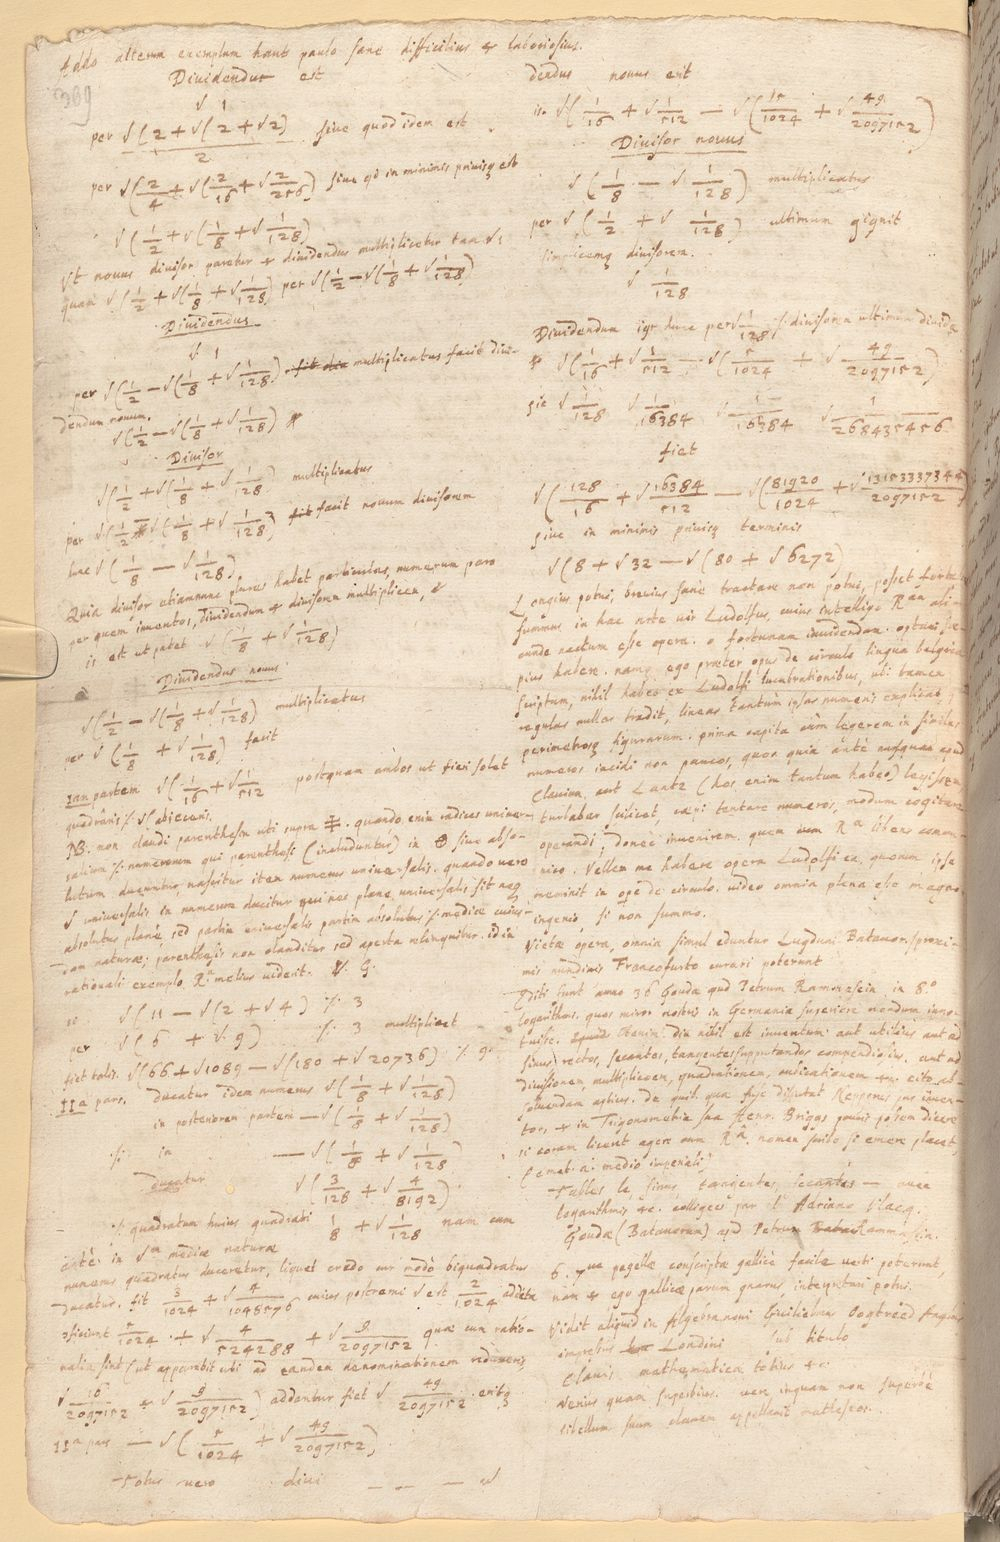 Addo alterum exemplum haut paulo sane difficilius & laboriosius.
369
Dividendus est
√ 1
per √(2 + √(2 + √2) sive quod idem est
2
per √(2/4 + √(2/16 + √2/256) sive qd in minimis
√(1/2 + √(1/8 + √1/128)
Ut novus divisor paretur & dividendus multiplicetur tam √1
quam √(1/2 + √(1/8 + √1/128) per √(1/2 − √(1/8 + √1/128)
Dividendus
√ 1
per √(1/2 − √(1/8 + √1/128) multiplicatus facit divi-
dendum novum.
√(1/2 − √(1/8 + √1/128)
Divisor
√(1/2 + √(1/8 + √1/128) multiplicatus
per √(1/2 − √(1/8 + √1/128) facit novum divisorem
hunc √(1/8 − √1/128)
Quia divisor etiamnunc plures habet particulas, numerum paro
per quem inventos, Dividendum & divisorem multiplicem, &
is est ut patet √(1/8 + √1/128)
Dividendus novus
√(1/2 − √(1/8 + √1/128) multiplicatus
per √(1/8 + √1/128) facit
Iam partem √(1/16 + √1/512 postquam ambos ut fieri solet
quadraris
NB. non claudi parenthesin uti supra quando enim radices univer-
salium numerorum qui parenthesi (includuntur) in sive abso-
lutum ducuntur, nascitur item numerus universalis. quando vero
√ universalis in numerum ducitur qui nec plane universalis sit neq
absolutus plane, sed partim universalis partim absolutus mediae
naturae; parenthesis non clauditur sed aperta relinquitur. id in
rationali exemplo Ra melius viderit. V. G.
√(11 − √(2 + √4) % 3
per √(6 + √9) % 3 multiplicet
fiet talis. √(66 + √1089 − √(180 + √20736) % 9.
IIa pars. Ducatur idem numerus √(1/8 + √1/128)
in posteriorem partem − √(1/8 + √1/128)
in − √(1/8 + √1/128)
ducatur √(3/128 + √4/8192)
quadratum huius quadrati 1/8 + √1/128 nam cum
ante in √m mediae naturae
numerus quadratus duceretur, liquet credo cur modo biquadratus
ducatur. fit 3/1024 + √4/1048576 cuius postremi √ est 2/1024 addita
efficiunt 5/1024 + √4/524288 + √9/2097152 quae cum ratio-
nalia sint (ut apparebit ubi ad eandem denominationem reduxeris
√16/2097152 & √9/2097152) addentur fiet √49/2097152. eritq
IIa pars − √(5/1024 + √49/2097152)
Totus vero divi — — — &
dendus novus erit
is. √(1/16 + √1/512 − √(5/1024 + √49/2097152)
Divisor novus
√(1/8 − √1/128) multiplicatus
per √(1/8 + √1/128) ultimum gignit
simplicemq divisorem.
√1/128
Dividendum igr hunc per √1/128 divisorem ultimum divide
√(1/16 + √1/512 − √(5/1024 + √49/2097152)
sic √1/128 √1/16384 √1/16384 √1/268435456
fiet
√(128/16 + √16384/512 − √(81920/1024 + √13153337344/2097152)
sive in minimis terminis
√(8 + √32 − √(80 + √6272)
Longius potui, brevius sane tractare non potui, posset forte
summus in hac arte vir Ludolfus, cuius intelligo Ram ali-
cunde nactum esse opera. o fortunam invidendam. optavi sae-
pius habere. namq ego praeter opus de circulo lingua belgica
scriptum, nihil habeo ex Ludolfi lucubrationibus, ubi tamen
regulas nullas tradit, lineas tantum ipsas numeris explicat
perimetrosq figurarum. prima capita cum legerem in similes
numeros incidi non paucos, quos quia ante nusquam apud
Clavium aut Lantz (hos enim tantum habeo) legissem,
turbabar scilicet, coepi tentare numeros, modum cogitare
operandi, donec invenirem. quem cum Ra libens commu-
nico. Vellem me habere opera Ludolfi ea, quorum ipse
meminit in ope de circulo. video omnia plena esse magno
ingenio si non summo.
Vietae opera, omnia simul eduntur Lugduni Batavor. proxi-
mis nundinis Francofurto curari poterunt
Editi sunt anno 36 Goudae apud Petrum Rammasein in 8°
logarithmi. quos miror nostris in Germania superiore nondum inno-
tuisse. diu nihil est inventum aut utilius aut ad
sinus rectos, secantes, tangentes supputandos compendiosius. aut ad
divisionem, multiplicem, quadrationem, cubicationem &c. cito ab-
solvendam aptius. De quib. quae fuse disputat Kepperus
& in Trigonometria sua Henr. Briggs paucis possem dicere
si coram liceret agere cum Ra. nomen scribo si emere placet,
(emet. n. medio imperiali)
Tables le sinus, tangentes, secantes — avec
logarithmis &c. colligees par l' Adriano Vlacq.
Goudae (Batavorum) apd Petrum Rammasein.
6. 7ve pagellae conscriptae gallice facile verti poterunt,
nam & ego gallicae parum gnarus, interpretari potui.
Vidit aliquid in Algebra novi Guilielmus Oogtred Anglus
impressus Londini sub titulo
Clavis mathematica totius &c.
venius quam superbius. vere inquam non superbe
libellum suum clavem appellavit matheseos.